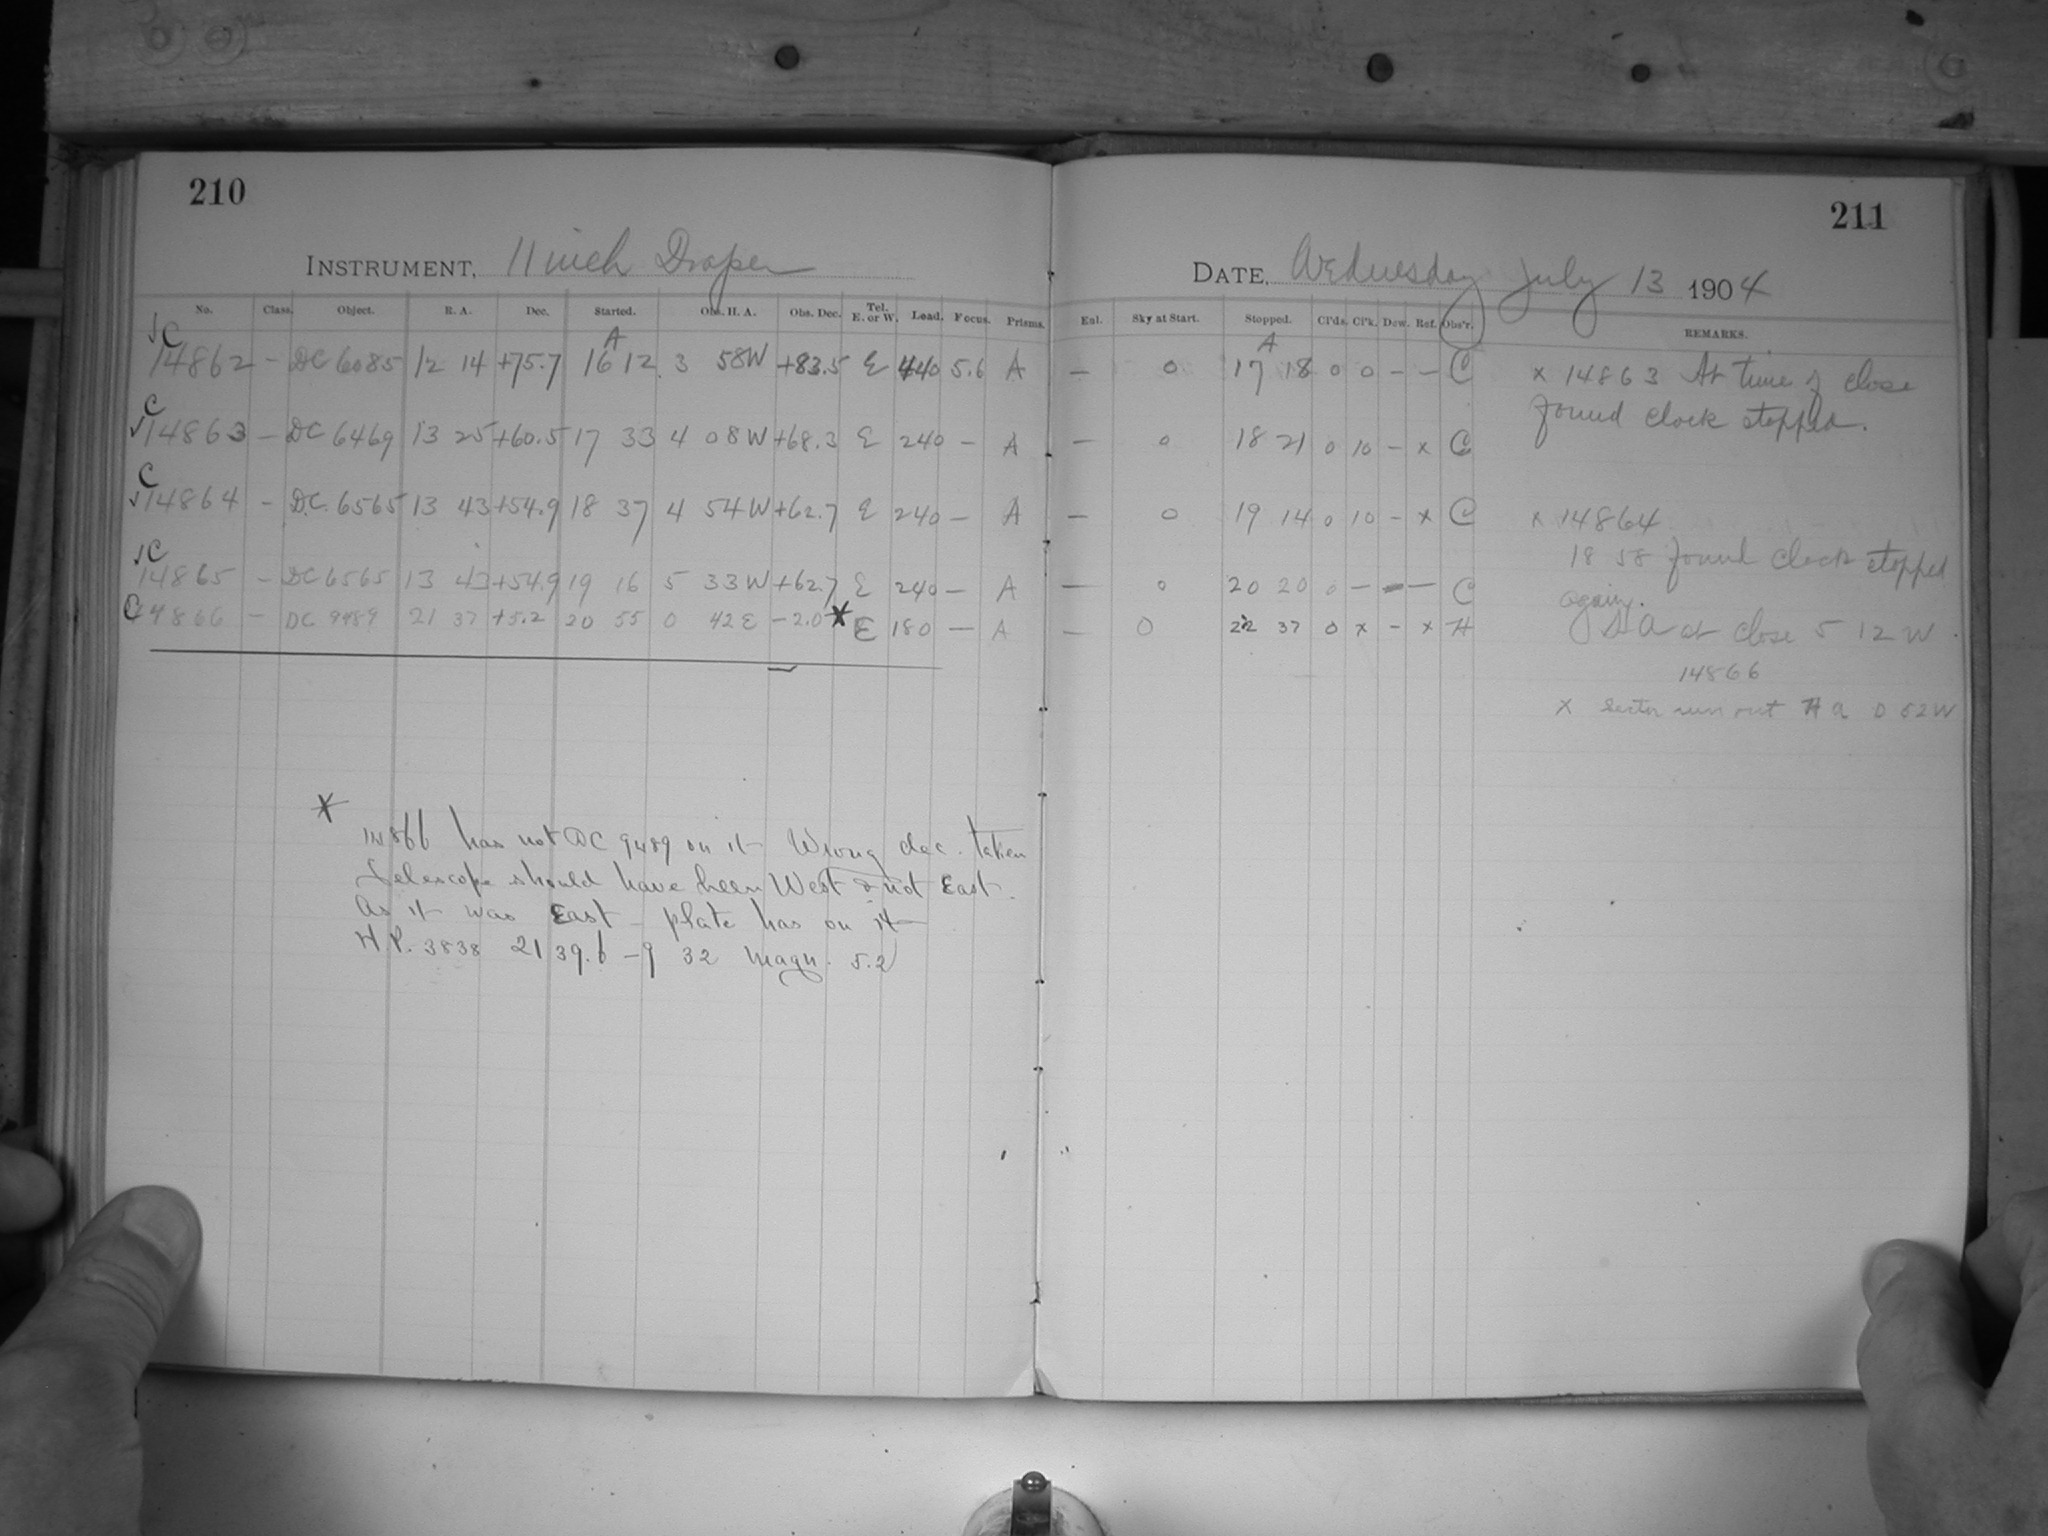 210
INSTRUMENT, 11 inch Draper
No. Class. Object. R. A. Dec. Started. Obs. H. A. Obs. Dec. Tel. E. or W. Load. Focus. Prisms.
√C A
14862 – DC 6085 12 14 +75.7 16 12 3 58W +83.5 E 440 5.6 A
C
√14863 – DC 6469 13 25 +60.5 17 33 4 08W +68.3 E 240 – A
C
√14864 – D.C. 6565 13 43 +54.9 18 37 4 54W +62.7 E 240 – A
√C
14865 – DC 6565 13 43 +54.9 19 16 5 33W +62.7 E 240 – A
C
14866 – DC 9489 21 37 +5.2 20 55 0 42E –2.0 * E 180 – A
*
14866 has not DC 9489 on it Wrong dec. taken
Telescope should have been West & not East.
As it was East – plate has on it
H.P. 3838 21 39.6 –9 32 magn. 5.2
211
DATE, Wednesday July 13 1904
Enl. Sky at Start. Stopped. Cl'ds. Cl'k. Dew. Ref. Obs'r. REMARKS.
A
— 0 17 18 0 0 – – C x 14863 At time of close
found clock stopped.
— 0 18 21 0 10 – x C
— 0 19 14 0 10 – x C x 14864
18 58 found clock stopped
again.
— 0 20 20 0 – – – C
— 0 22 37 0 x – x H H A at close 5 12 W.
14866
x Sector run out H a 0 52W